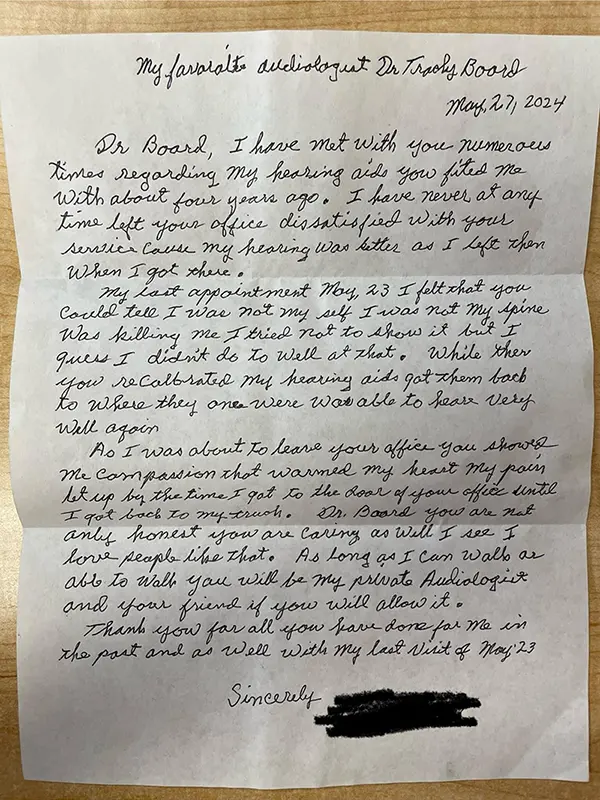 My favorate audiologist Dr Tracy Board
May, 27, 2024
Dr Board, I have met with you numerous
times regarding my hearing aids you fited me
with about four years ago. I have never at any
time left your office dissatisfied with your
service cause my hearing was better as I left then
when I got there.
My last appointment May, 23 I felt that you
could tell I was not my self I was not my spine
was killing me I tried not to show it but I
guess I didn't do to well at that. While ther
you recalbrated my hearing aids got them back
to where they once were was able to heare very
well again
As I was about to leave your office you showed
me compassion that warmed my heart my pain
let up by the time I got to the door of your office until
I got back to my truck. Dr. Board you are not
only honest you are caring as well I see I
love people like that. As long as I can walk or
able to walk you will be my private Audiologist
and your friend if you will allow it.
Thank you for all you have done for me in
the past and as well with my last visit of May 23
Sincerely